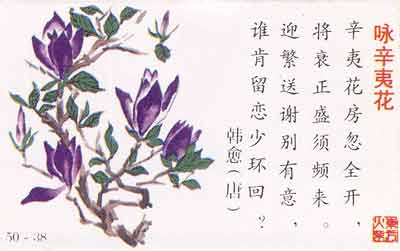 咏辛夷花
辛夷花房忽全开，
将衰正盛须频来。
迎繁送谢别有意，
谁肯留恋少环回？
韩愈（唐）
50-38